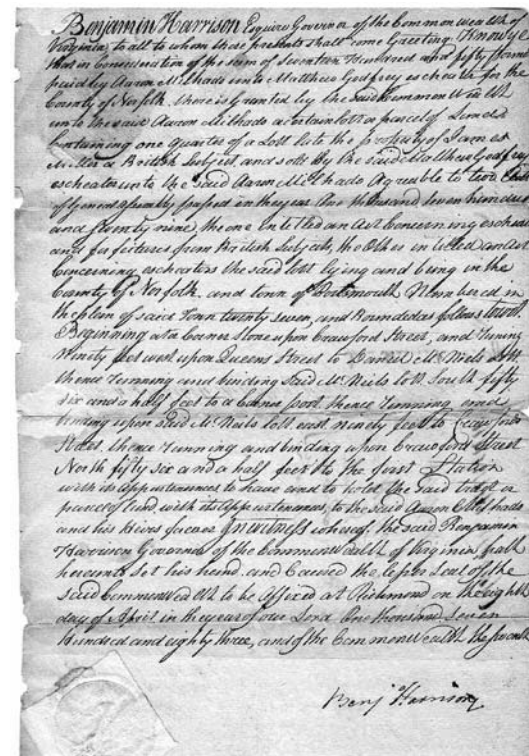 Benjamin Harrison Esquire Governor of the Commonwealth of
Virginia, to all to whom these presents shall come Greeting. Know ye
that in Consideration of the sum of Seventeen Hundred and fifty Pounds
paid by Aaron Milhado unto Matthew Godfrey escheator for the
County of Norfolk, there is Granted by the said Common Wealth
unto the said Aaron Milhado a certain lott or parcel of Land
Containing one quarter of a Lott late the property of James
Miller a British Subject, and sold by the said Matthew Godfrey
escheator unto the said Aaron Milhado Agreable to two
of General Assembly passed in the year One thousand seven hundred
and seventy nine, the one Entitled an Act Concerning escheats
and forfeitures from British Subjects, the Other intitled an Act
Concerning escheators the said lott lying and being in the
County of Norfolk, and town of Portsmouth Numbered in
the plan of said Town twenty seven, and Bounded as follows towitt
Beginning at a Corner Stone upon Crawford Street, and Running
Ninety feet west upon Queens Street to Daniel McNeils Lott
thence Running and binding said McNeils lott South fifty
six and a half feet to a Corner post, thence Running and
binding upon said McNeils lott east ninety feet to Crawford
Street, thence Running and binding upon Crawford Street
North fifty six and a half feet to the first Station
with its Appurtenances to have and to hold the said tract or
parcel of Land with its Appurtenances, to the said Aaron Milhado
and his Heirs forever In witness whereof the said Benjamin
Harrison Governor of the Commonwealth of Virginia hath
hereunto Set his hand and Caused the lesser Seal of the
said Commonwealth to be Affixed at Richmond on the eighth
day of April in the year of our Lord One thousand seven
Hundred and eighty three, and of the Commonwealth the seventh
Benj Harrison